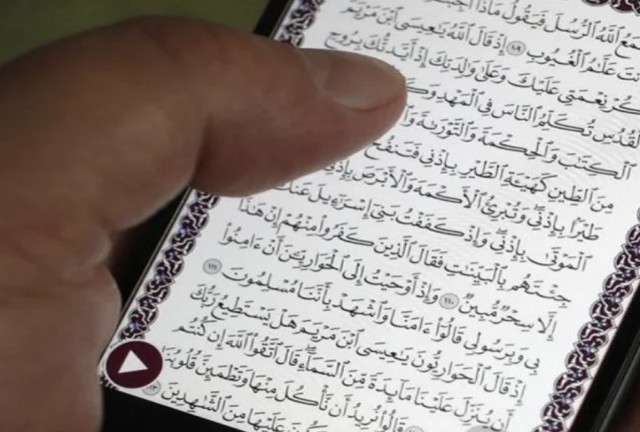 مَعُ ٱللَّهُ ٱلرُّسُلَ فَيَقُولُ مَاذَآ
عَلَّـٰمُ ٱلْغُيُوبِ ١٠٩ إِذْ قَالَ ٱللَّهُ يَـٰعِيسَى ٱبْنَ مَرْيَمَ
كُرْ نِعْمَتِى عَلَيْكَ وَعَلَىٰ وَٰلِدَتِكَ إِذْ أَيَّدتُّكَ بِرُوحِ
لْقُدُسِ تُكَلِّمُ ٱلنَّاسَ فِى ٱلْمَهْدِ
ٱلْكِتَـٰبَ وَٱلْحِكْمَةَ وَٱلتَّوْرَىٰةَ
مِنَ ٱلطِّينِ كَهَيْـَٔةِ ٱلطَّيْرِ بِإِذْنِى فَتَنفُخُ
طَيْرًۢا بِإِذْنِى وَتُبْرِئُ ٱلْأَكْمَهَ وَٱلْأَبْرَصَ بِإِذْنِى
ٱلْمَوْتَىٰ بِإِذْنِى وَإِذْ كَفَفْتُ بَنِىٓ إِسْرَٰٓءِيلَ عَنكَ
جِئْتَهُم بِٱلْبَيِّنَـٰتِ فَقَالَ ٱلَّذِينَ كَفَرُوا۟ مِنْهُمْ إِنْ هَـٰذَآ
إِلَّا سِحْرٌ مُّبِينٌ ١١٠ وَإِذْ أَوْحَيْتُ إِلَى ٱلْحَوَارِيِّـۧنَ أَنْ ءَامِنُوا۟
بِى وَبِرَسُولِى قَالُوٓا۟ ءَامَنَّا وَٱشْهَدْ بِأَنَّنَا مُسْلِمُونَ ١١١
إِذْ قَالَ ٱلْحَوَارِيُّونَ يَـٰعِيسَى ٱبْنَ مَرْيَمَ هَلْ يَسْتَطِيعُ رَبُّكَ
أَن يُنَزِّلَ عَلَيْنَا مَآئِدَةً مِّنَ ٱلسَّمَآءِ قَالَ ٱتَّقُوا۟ ٱللَّهَ إِن كُنتُم
قَالُوا۟ نُرِيدُ أَن نَّأْكُلَ مِنْهَا وَتَطْمَئِنَّ قُلُوبُنَا
عَلَيْهَا مِنَ ٱلشَّـٰهِدِينَ ١١٣